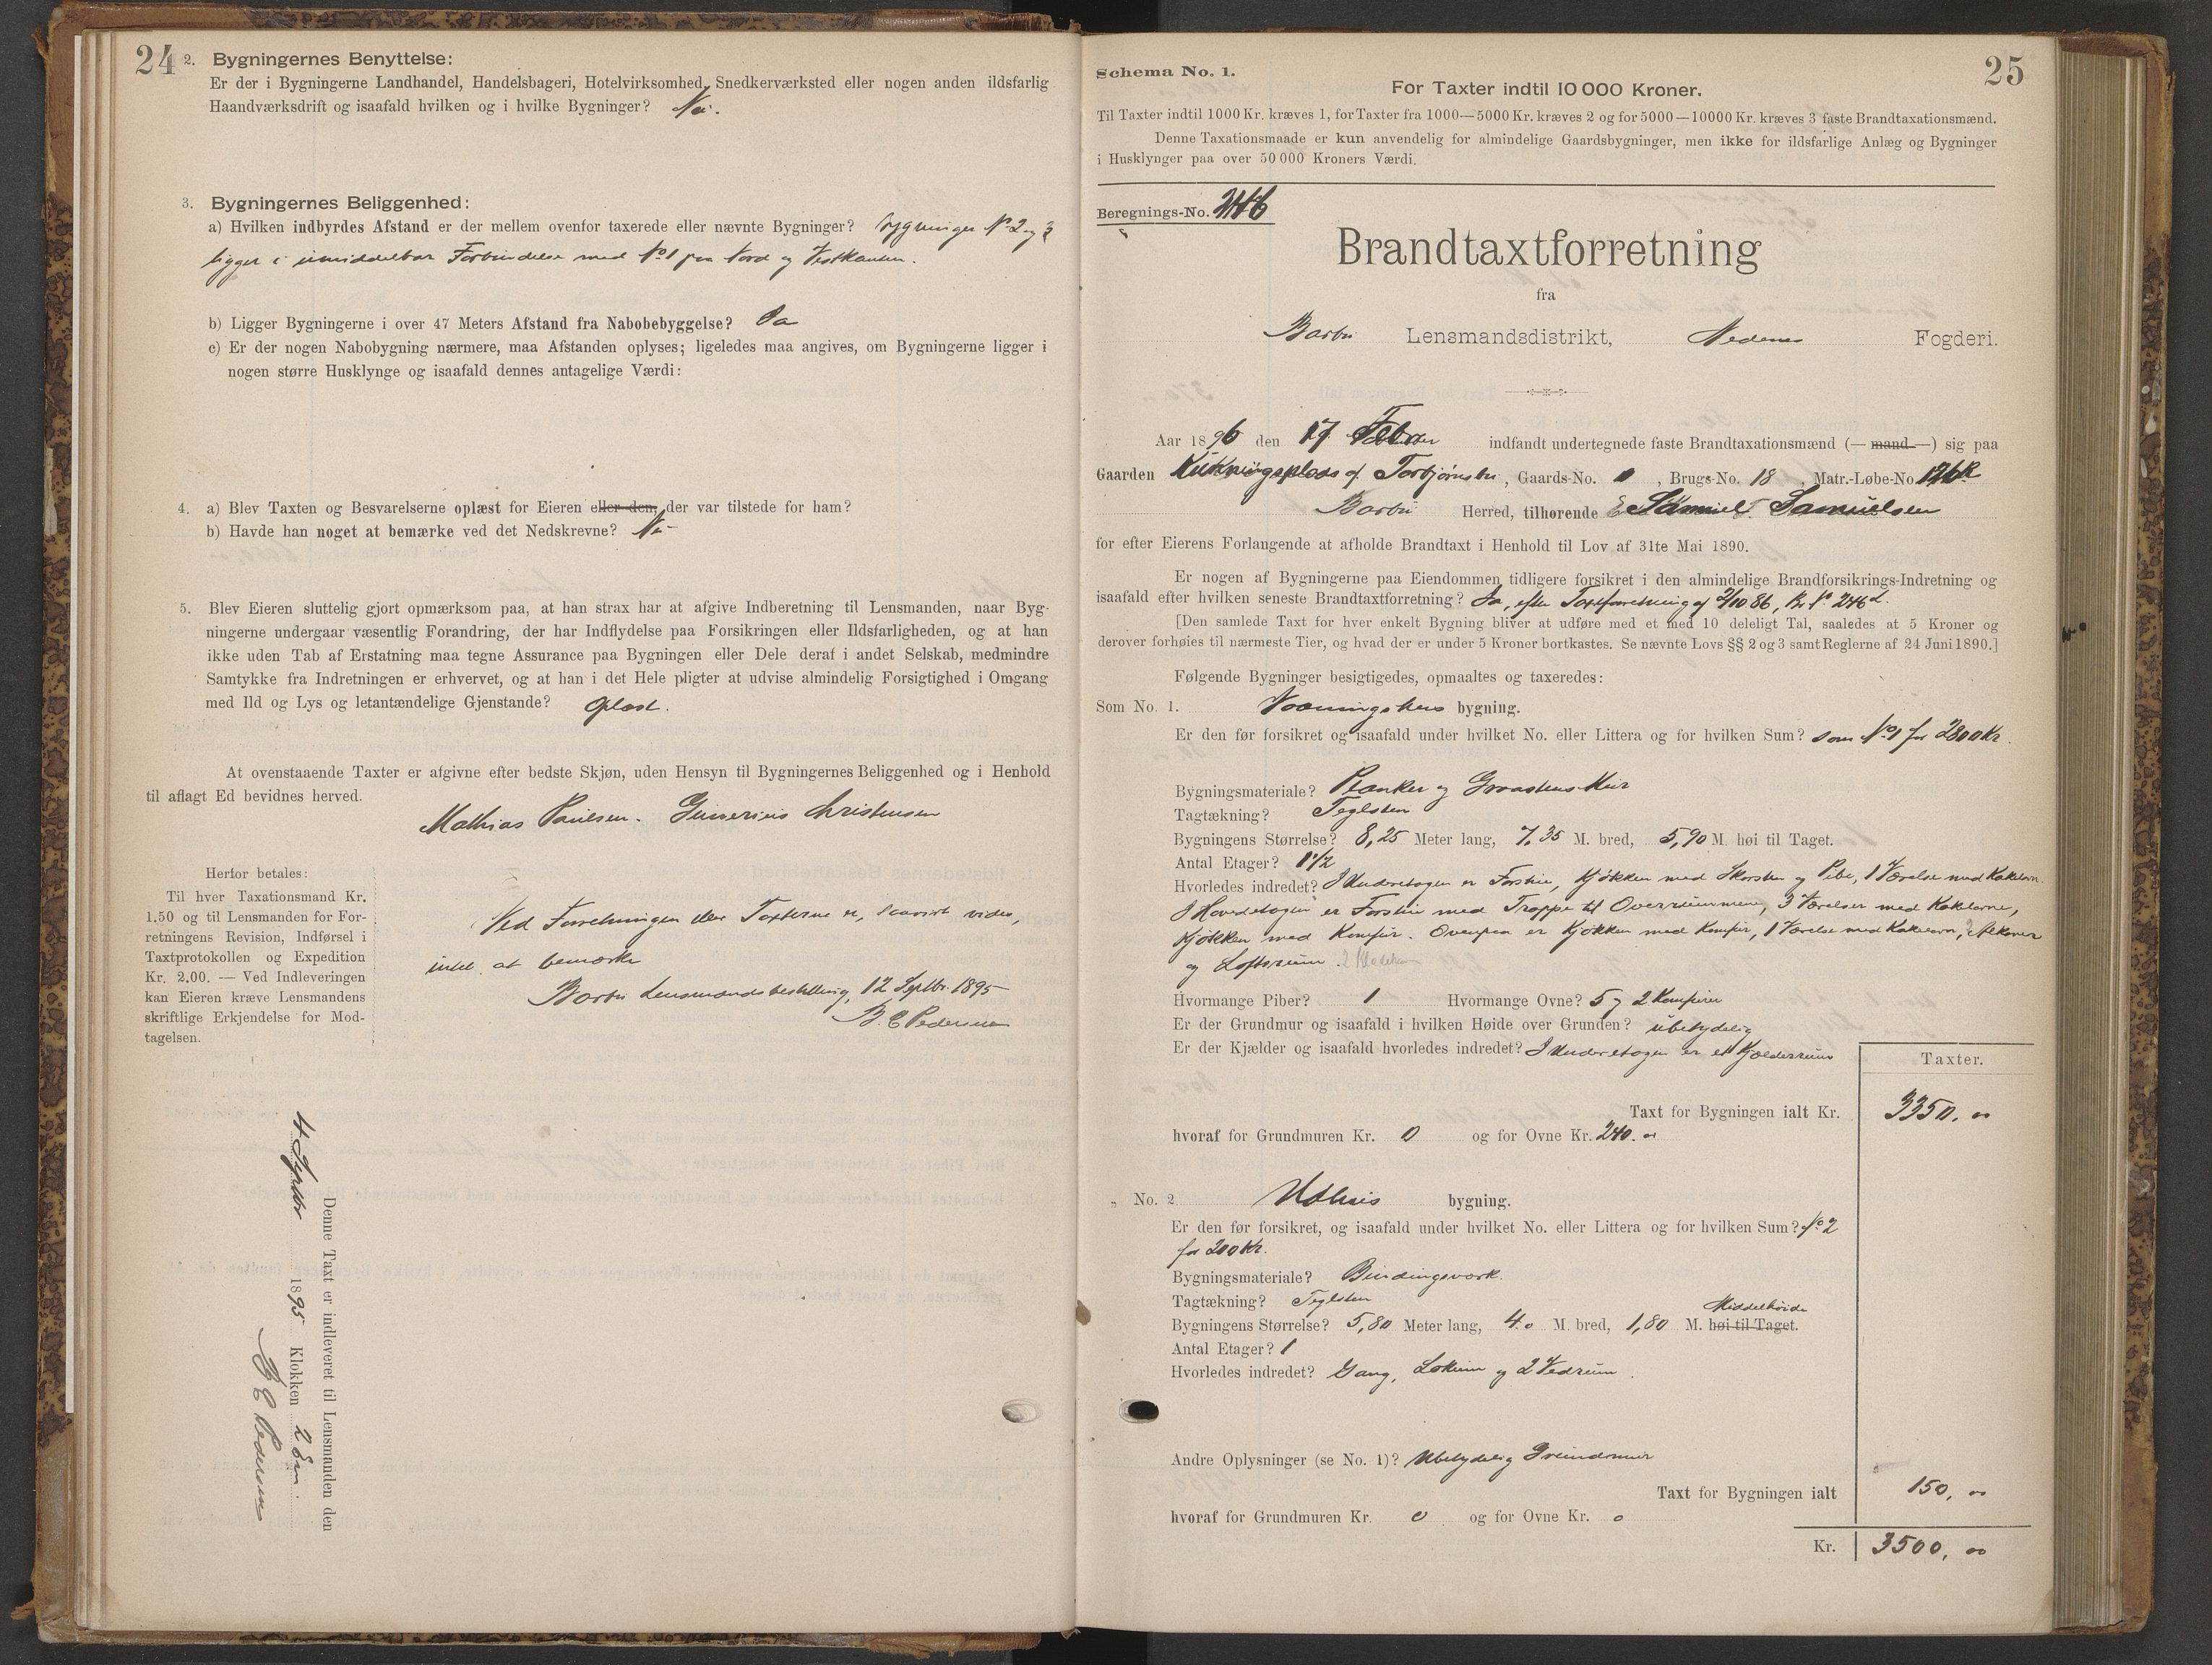 24
2. Bygningernes Benyttelse:
Er der i Bygningerne Landhandel, Handelsbageri, Hotelvirksomhed, Snedkerværksted eller nogen anden ildsfarlig
Haandværksdrift og isaafald hvilken og i hvilke Bygninger? Nei.
3. Bygningernes Beliggenhed:
a) Hvilken indbyrdes Afstand er der mellem ovenfor taxerede eller nævnte Bygninger? bygninger No 2 og 3
ligger i umiddelbar Forbindelse med No 1 paa Nord og Vestkanten.
b) Ligger Bygningerne i over 47 Meters Afstand fra Nabobebyggelse? Ja
c) Er der nogen Nabobygning nærmere, maa Afstanden oplyses; ligeledes maa angives, om Bygningerne ligger i
nogen større Husklynge og isaafald dennes antagelige Værdi:
4. a) Blev Taxten og Besvarelserne oplæst for Eieren eller den, der var tilstede for ham?
b) Havde han noget at bemærke ved det Nedskrevne? Nei
5. Blev Eieren sluttelig gjort opmærksom paa, at han strax har at afgive Indberetning til Lensmanden, naar Byg-
ningerne undergaar væsentlig Forandring, der har Indflydelse paa Forsikringen eller Ildsfarligheden, og at han
ikke uden Tab af Erstatning maa tegne Assurance paa Bygningen eller Dele deraf i andet Selskab, medmindre
Samtykke fra Indretningen er erhvervet, og at han i det Hele pligter at udvise almindelig Forsigtighed i Omgang
med Ild og Lys og letantændelige Gjenstande? Oplæst.
At ovenstaaende Taxter er afgivne efter bedste Skjøn, uden Hensyn til Bygningernes Beliggenhed og i Henhold
til aflagt Ed bevidnes herved.
Mathias Paulsen. Gunerius Christensen
Herfor betales:
Til hver Taxationsmand Kr.
1.50 og til Lensmanden for For-
retningens Revision, Indførsel i
Taxtprotokollen og Expedition
Kr. 2.00. — Ved Indleveringen
kan Eieren kræve Lensmandens
skriftlige Erkjendelse for Mod-
tagelsen.
Ved Forretningen eller Taxterne er, saavidt vides,
intet at bemærke
Barbu Lensmandsbestilling, 12 Septbr. 1895
B. C Pedersen
Denne Taxt er indleveret til Lensmanden den
4 Septbr 1895 Klokken 2 Em.
B C Pedersen
25
Schema No. 1.
For Taxter indtil 10 000 Kroner.
Til Taxter indtil 1000 Kr. kræves 1, for Taxter fra 1000—5000 Kr. kræves 2 og for 5000—10000 Kr. kræves 3 faste Brandtaxationsmænd.
Denne Taxationsmaade er kun anvendelig for almindelige Gaardsbygninger, men ikke for ildsfarlige Anlæg og Bygninger
i Husklynger paa over 50 000 Kroners Værdi.
Beregnings-No. 246
Brandtaxtforretning
fra
Barbu Lensmandsdistrikt, Nedenes Fogderi.
Aar 1896 den 17 Febr indfandt undertegnede faste Brandtaxationsmænd (— mand —) sig paa
Gaarden af Torbjørnsbu, Gaards-No. , Brugs-No. 18, Matr.-Løbe-No.
Barbu Herred, tilhørende Samuel Samuelsen
for efter Eierens Forlangende at afholde Brandtaxt i Henhold til Lov af 31te Mai 1890.
Er nogen af Bygningerne paa Eiendommen tidligere forsikret i den almindelige Brandforsikrings-Indretning og
isaafald efter hvilken seneste Brandtaxtforretning? Ja, efter Taxtforretning af 2/10 86, Br. No. 246
[Den samlede Taxt for hver enkelt Bygning bliver at udføre med et med 10 deleligt Tal, saaledes at 5 Kroner og
derover forhøies til nærmeste Tier, og hvad der er under 5 Kroner bortkastes. Se nævnte Lovs §§ 2 og 3 samt Reglerne af 24 Juni 1890.]
Følgende Bygninger besigtigedes, opmaaltes og taxeredes:
Som No. 1. Vaaningshus bygning.
Er den før forsikret og isaafald under hvilket No. eller Littera og for hvilken Sum? som No 1 for 2800 Kr.
Bygningsmateriale? Planker og Graastens Mur
Tagtækning? Teglsten
Bygningens Størrelse? 8,25 Meter lang, 7,35 M. bred, 5,90 M. høi til Taget.
Antal Etager? 1 1/2
Hvorledes indredet? I Underetagen er Forstue, Kjøkken med Skorsten og Pibe, 1 Værelse med Kakelovn.
I Hovedetagen er Forstue med Trappe til Overrummene, 3 Værelser med Kakelovne,
Kjøkken med Komfur. Ovenpaa er Kjøkken med Komfur, 1 Værelse med Kakelovn, 2 Alkover
og Loftsrum.
Hvormange Piber? 1 Hvormange Ovne? 5 og 2 Komfurer
Er der Grundmur og isaafald i hvilken Høide over Grunden? ubetydelig
Er der Kjælder og isaafald hvorledes indredet? I Underetagen er et Kjælderrum
Taxter.
Taxt for Bygningen ialt Kr. 3350, 00
hvoraf for Grundmuren Kr. 0 og for Ovne Kr. 240. 00
„ No. 2 Udhus bygning.
Er den før forsikret, og isaafald under hvilket No. eller Littera og for hvilken Sum? No 2
for 200 Kr.
Bygningsmateriale? Bindingsværk.
Tagtækning? Teglsten
Middelhøide
Bygningens Størrelse? 5,80 Meter lang, 4.0 M. bred, 1,80 M. høi til Taget.
Antal Etager? 1
Hvorledes indredet? Gang, Lokum og 2 Vedrum.
Andre Oplysninger (se No. 1)? Ubetydelig Grundmur
Taxt for Bygningen ialt 150, 00
hvoraf for Grundmuren Kr. 0 og for Ovne Kr. 0
Kr. 3500, 00